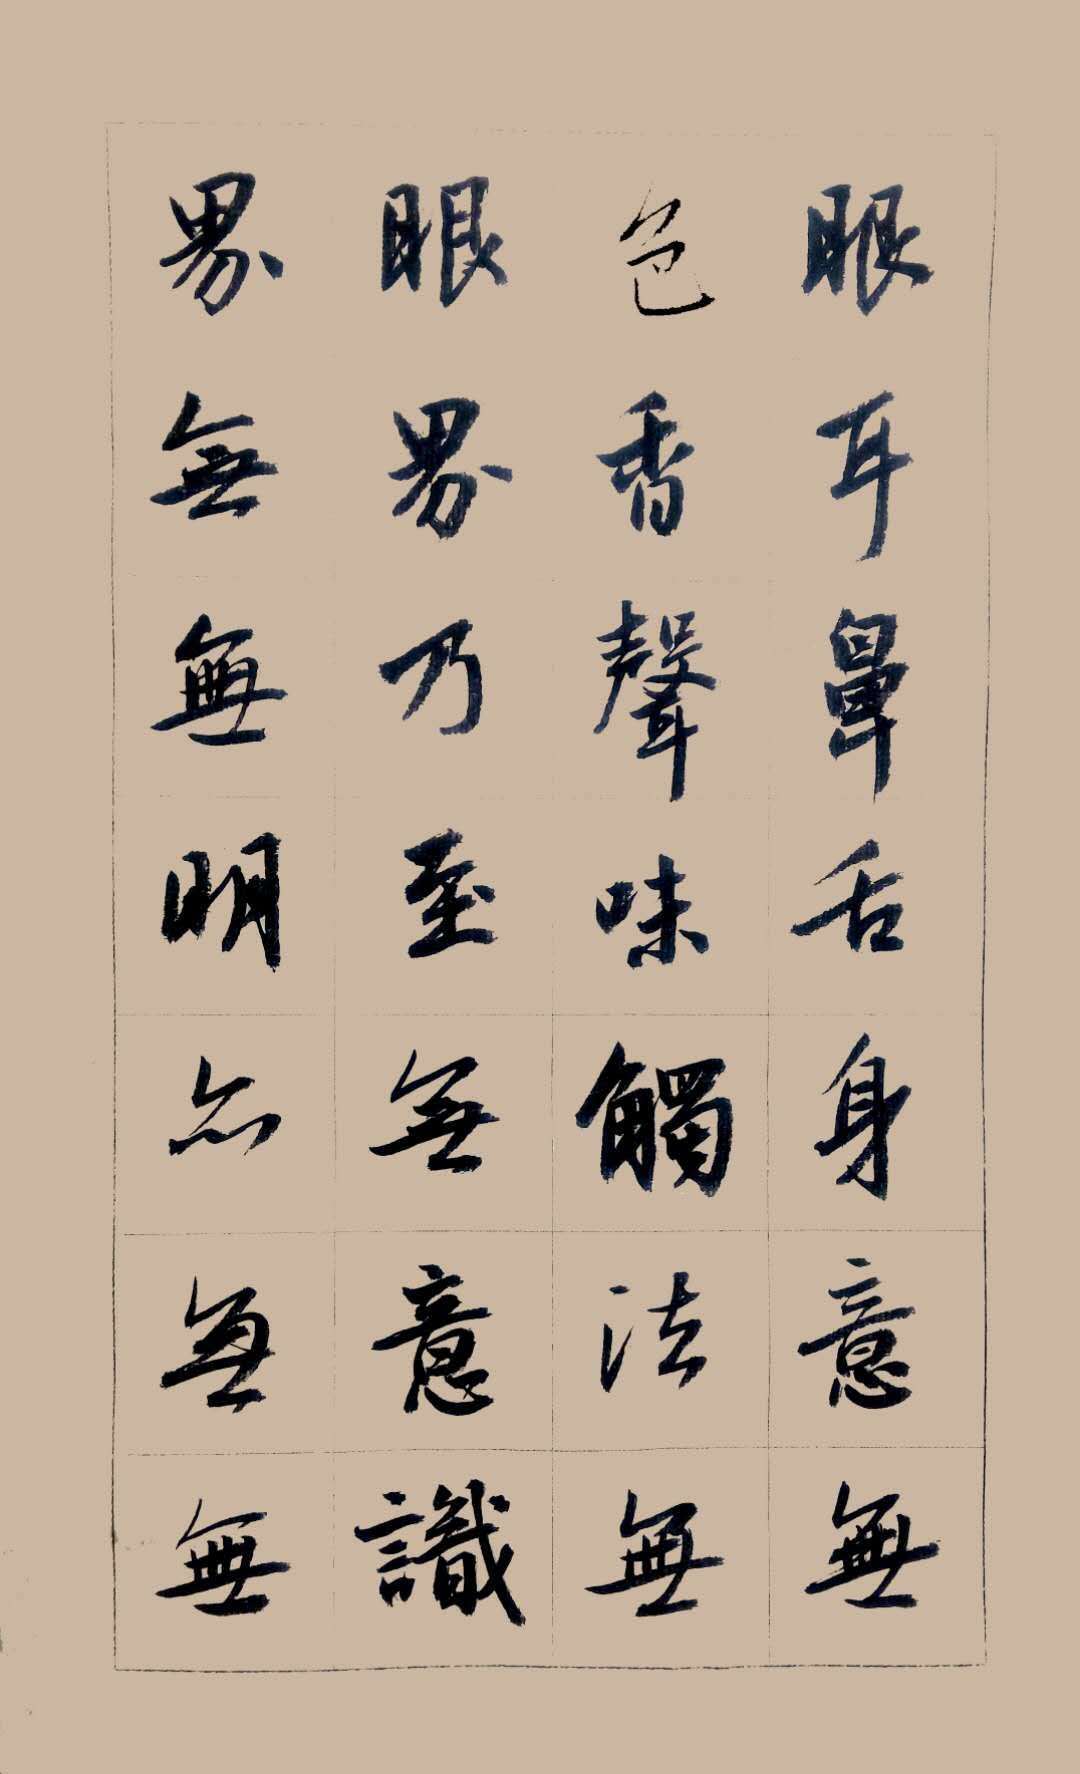 眼耳鼻舌身意無
色香聲味觸法無
眼界乃至無意識
界無無明亦無無